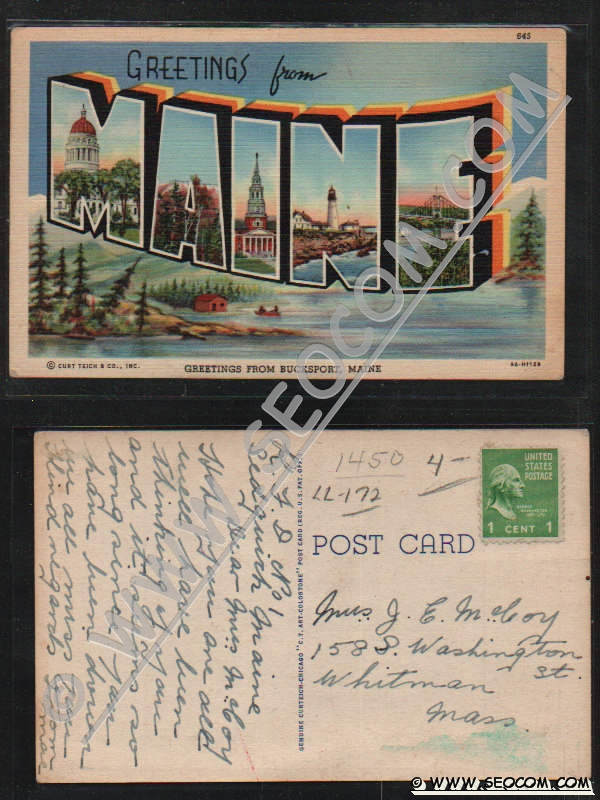 645
GREETINGS from
MAINE
© CURT TEICH & CO., INC.
GREETINGS FROM BUCKSPORT, MAINE
5A-H1128
WWW.SEOCOM.COM
R. F. D. No 1
Sedgwick Maine
Dear Mrs McCoy
Hope you are all
well have been
thinking of you
and it seems so
long since you
have been down
we all miss you
Kind regards from
GENUINE CURTEICH-CHICAGO "C.T. ART-COLORTONE" POST CARD (REG. U.S. PAT. OFF.)
1450 4-
LL-172
UNITED
STATES
POSTAGE
1 CENT 1
POST CARD
Mrs. J. E. McCoy
158 S. Washington
St.
Whitman
Mass.
© WWW.SEOCOM.COM